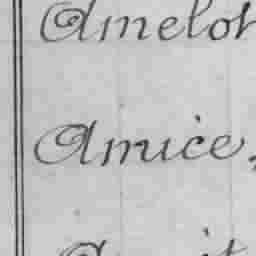 Amelot
Amice,